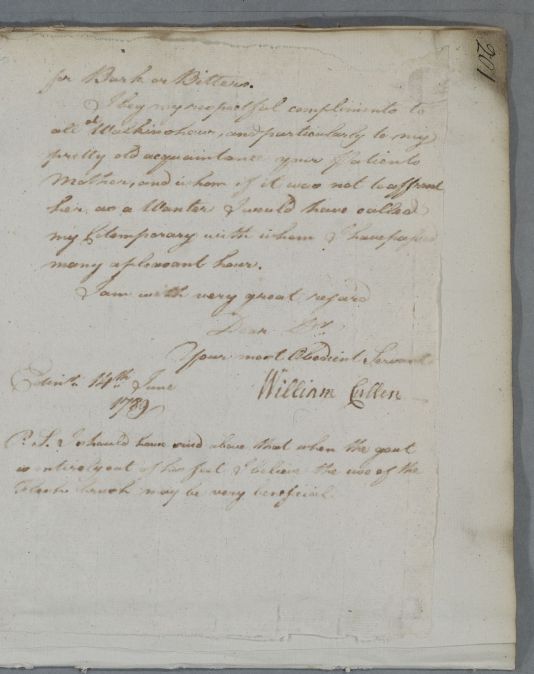 201
for Bark or Bitters.
I beg my respectful compliments to
all at Walkinshaw, and particularly to my
pretty old acquaintance your Patients
Mother, and whom if it was not to affront
her, as a Wanter I would have called
my Cotemporary with whom I have passed
many a pleasant hour.
I am with very great regard
Dear Sir
Your most Obedient Servant
Edinr. 14th June
1789
William Cullen
P. S. I should have said above that when the gout
is entirely out of her feet I believe the use of the
flesh brush may be very beneficial.